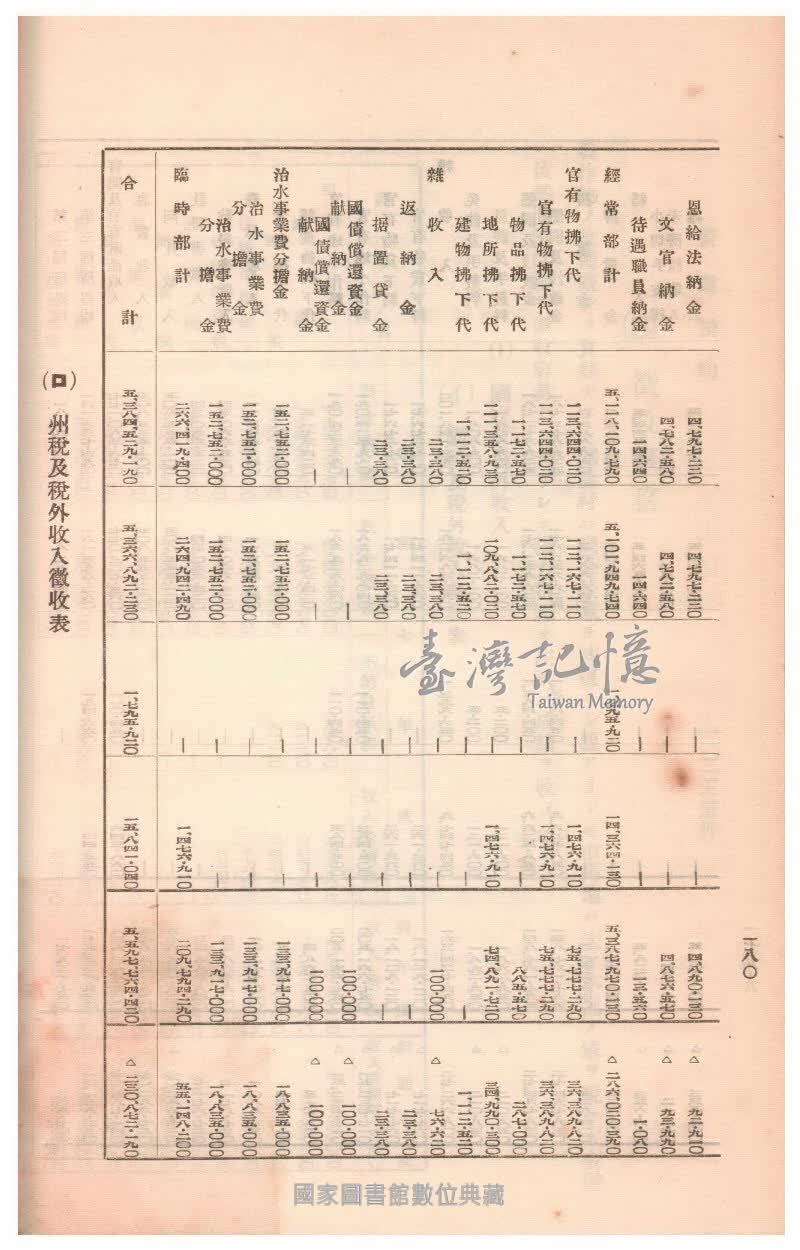 一八〇
恩給法納金 四、七九七・二二〇 四、七九七・二二〇 — — 四、八九〇・一三〇 △ 九二・九一〇
文官納金 四、七八二・五八〇 四、七八二・五八〇 — — 四、八七六・五七〇 △ 九三・九九〇
待遇職員納金 一四・六四〇 一四・六四〇 — — 一三・五六〇 一・〇八〇
經常部計 五、一一八、一〇九・七九〇 五、一〇一、九四九・七四〇 一、七九五・九二〇 一四、三六四・一三〇 五、三八七、九七〇・一三〇 △ 二八六、〇二〇・三九〇
官有物拂下代 一一三、六四四・〇二〇 一一二、一六七・一一〇 — 一、四七六・九一〇 七五、七七七・二九〇 三六、三八九・八二〇
官有物拂下代 一一三、六四四・〇二〇 一一二、一六七・一一〇 — 一、四七六・九一〇 七五、七七七・二九〇 三六、三八九・八二〇
物品拂下代 一、一七二・五七〇 一、一七二・五七〇 — — 八八五・五七〇 二八七・〇〇〇
地所拂下代 一一一、三五八・九三〇 一〇九、八八二・〇二〇 — 一、四七六・九一〇 七四、八九一・七二〇 三四、九九〇・三〇〇
建物拂下代 一、一一二・五二〇 一、一一二・五二〇 — — — 一、一一二・五二〇
雜收入 二三・三八〇 二三・三八〇 — — 一〇〇・〇〇〇 △ 七六・六二〇
返納金 二三・三八〇 二三・三八〇 — — — 二三・三八〇
据置貸金 二三・三八〇 二三・三八〇 — — — 二三・三八〇
國債償還資金獻納金 — — — — 一〇〇・〇〇〇 △ 一〇〇・〇〇〇
國債償還資金獻納金 — — — — 一〇〇・〇〇〇 △ 一〇〇・〇〇〇
治水事業費分擔金 一五二、七五二・〇〇〇 一五二、七五二・〇〇〇 — — 一三三、九一七・〇〇〇 一八、八三五・〇〇〇
治水事業費分擔金 一五二、七五二・〇〇〇 一五二、七五二・〇〇〇 — — 一三三、九一七・〇〇〇 一八、八三五・〇〇〇
治水事業費分擔金 一五二、七五二・〇〇〇 一五二、七五二・〇〇〇 — — 一三三、九一七・〇〇〇 一八、八三五・〇〇〇
臨時部計 二六六、四一九・四〇〇 二六四、九四二・四九〇 — 一、四七六・九一〇 二〇九、七九四・二九〇 五五、一四八・二〇〇
合計 五、三八四、五二九・一九〇 五、三六六、八九二・二三〇 一、七九五・九二〇 一五、八四一・〇四〇 五、五九七、七六四・四二〇 △ 二三〇、八七二・一九〇
(ロ) 州稅及稅外收入徵收表
臺灣記憶
Taiwan Memory
國家圖書館數位典藏